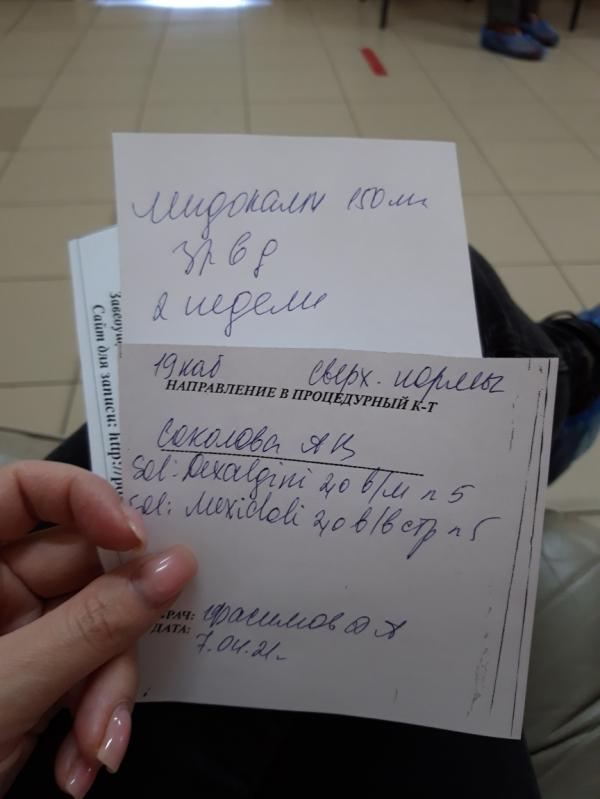 Мидокалм 150 мг
3 р в д
2 недели
Сайт для записи: http://p
19 каб сверх. нормы
НАПРАВЛЕНИЕ В ПРОЦЕДУРНЫЙ К-Т
Соколова А В
Sol: Dexalgini 2,0 в/м n 5
Sol: Mexidoli 2,0 в/в стр n 5
ВРАЧ: Герасимов Д А
ДАТА: 7.04.21г